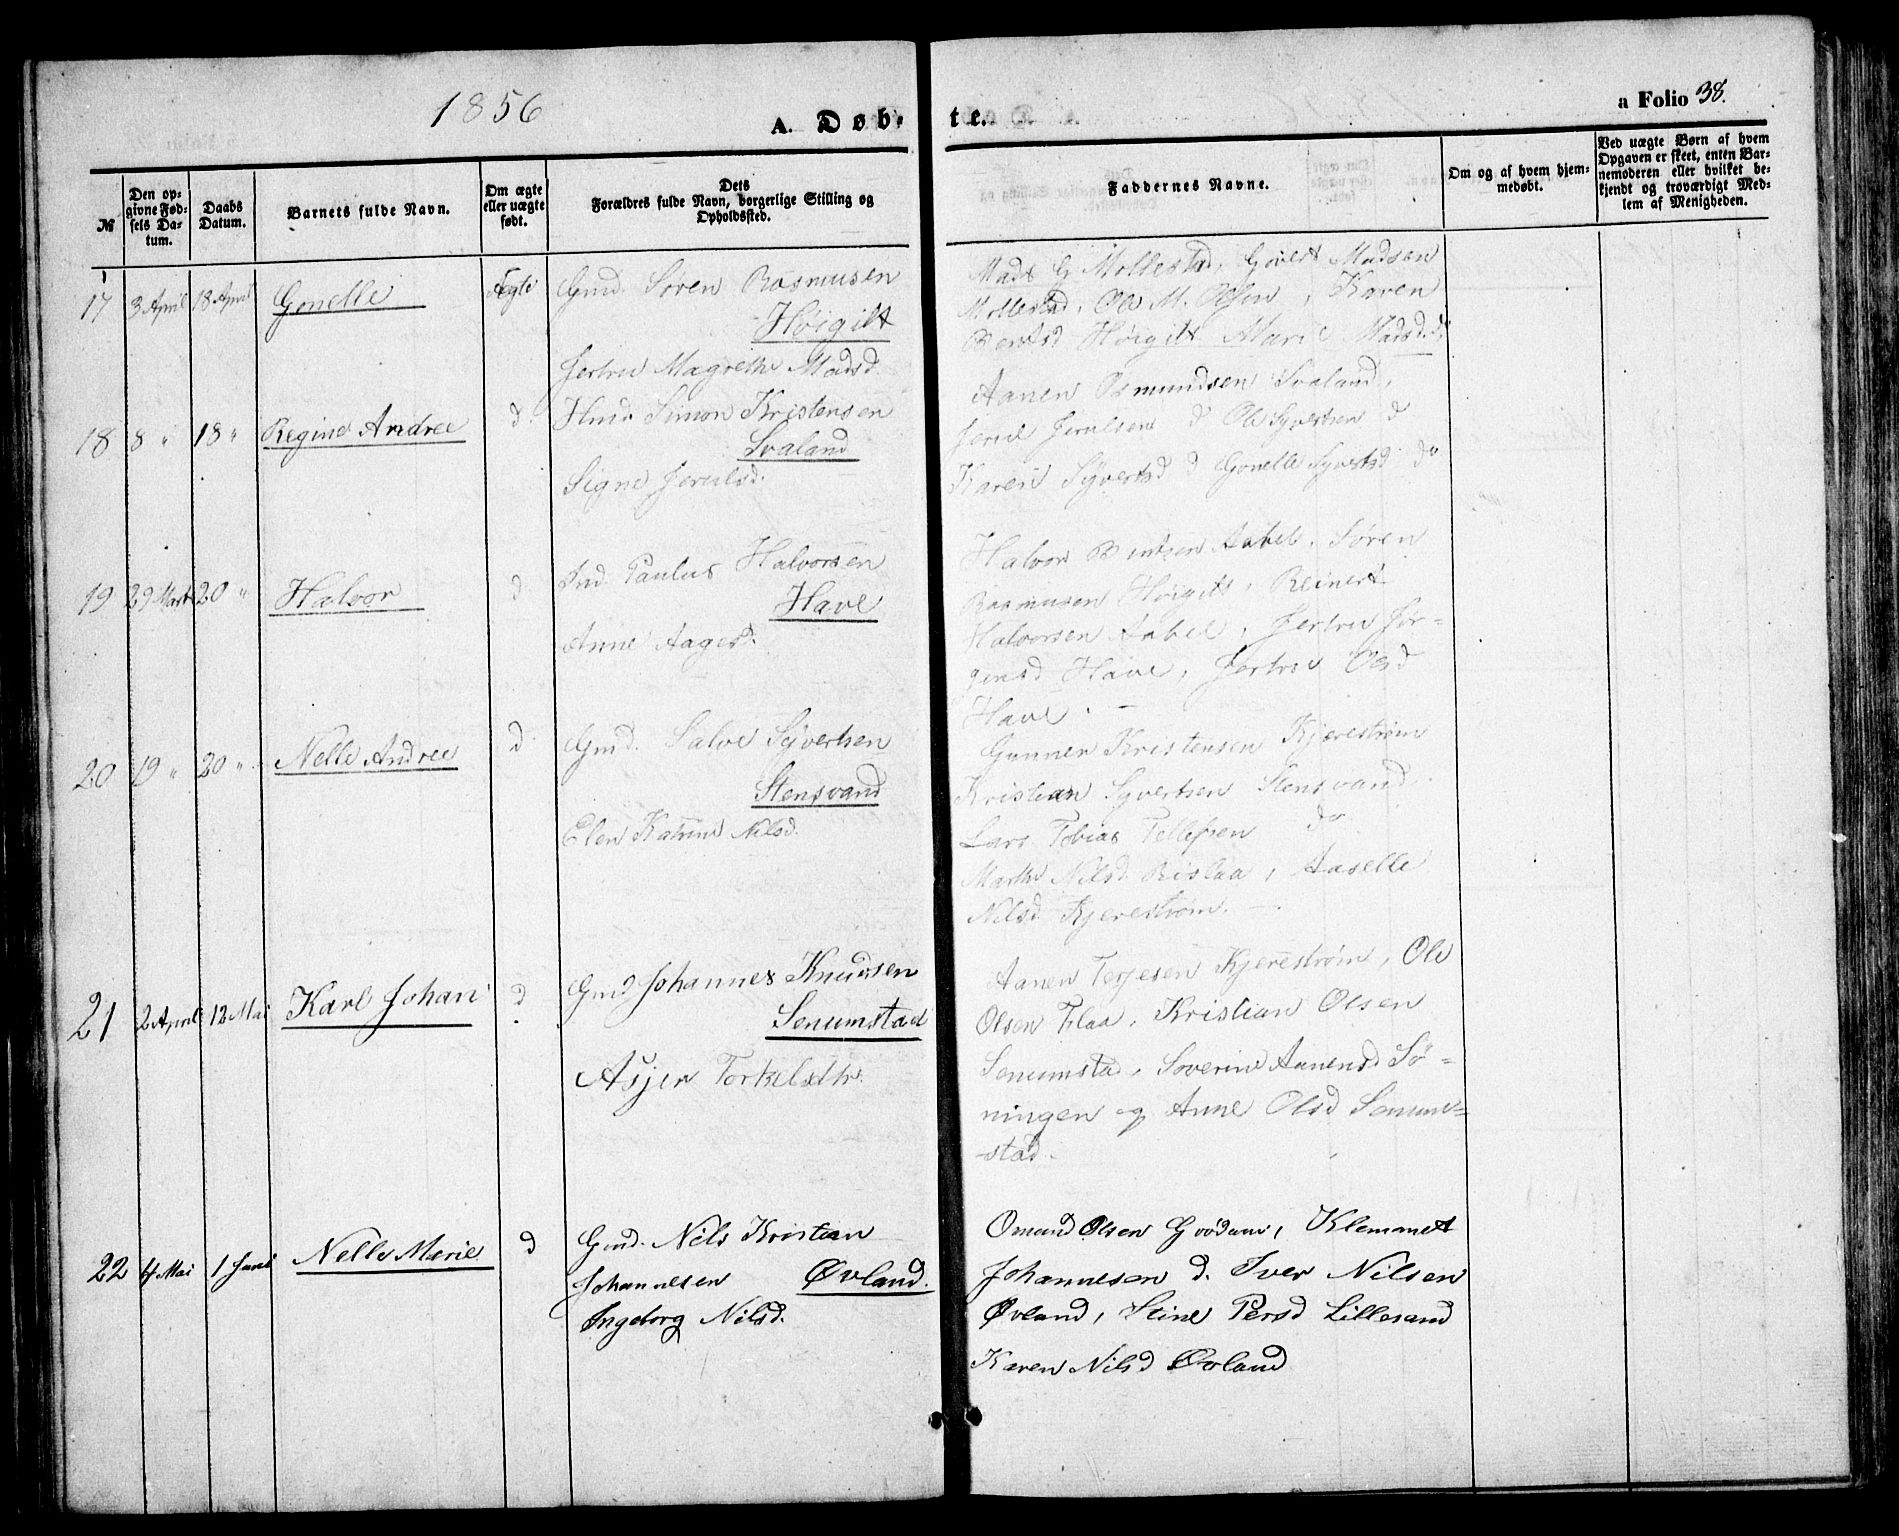 1856
A. Døb-
te.
a Folio 38.
№
Den op-
givne Fød-
sels Da-
tum.
Daabs
Datum.
Barnets fulde Navn.
Om ægte
eller uægte
født.
Dets
Forældres fulde Navn, borgerlige Stilling og
Opholdssted.
Faddernes Navne.
Om og af hvem hjem-
medøbt.
Ved uægte Børn af hvem
Opgaven er skeet, enten Bar-
nemoderen eller hvilket be-
kjendt og troværdigt Med-
lem af Menigheden.
17 3 April 18 April Gonelle Ægte Gmd. Søren Rasmusen
Høigilt
Jertru Magrethe Madsd.
Mads G Mollestad, Govert Madsen
Mollestad, Ole M. Olsen, Karen
Bentsd Høigilt Marie Madsd. do
18 8 " 18 " Regine Andree d. Huusm Simon Kristensen
Svaland
Signe Jerulsd.
Aanen Osmundsen Svaland,
Jerul Jerulsen d Ole Syvertsen d
Karen Syvertsd d Gonelle Syvertsd do
19 29 Marts 20 " Halvor d Ind. Paulus Halvorsen
Have
Anne Aagesd.
Halvor Bentsen Aabel, Søren
Rasmusen Høigilt, Reinert
Halvorsen Aabel, Jertru Jør-
gensd Have, Jertru Olsd
Have. —
20 19 " 20 " Nelle Andree d Gmd. Salve Syvertsen
Stensvand
Elen Katrine Nilsd.
Gunner Kristensen Kjerestrøm
Kristian Syvertsen Stensvand.
Lars Tobias Tellefsen do
Marthe Nilsd. Rislaa, Aaselle
Nilsd Kjerestrøm. —
21 2 April 12 Mai Karl Johan d. Gmd Johannes Knudsen
Senumstad
Asjer Torkelsdtr.
Aanen Terjesen Kjerestrøm, Ole
Olsen Flaa, Kristian Olsen
Senumstad, Soverine Aanensd Sø-
ningen og Anne Olsd Senum=
-stad.
22 4 Mai 1 Juni Nelle Marie d Gmd. Nils Kristian
Johannesen Øvland.
Ingeborg Nilsd.
Omund Olsen Klemmet
Johannesen d. Iver Nilsen
Øvland, Stine Persd Lillesand
Karen Nilsd Øvland